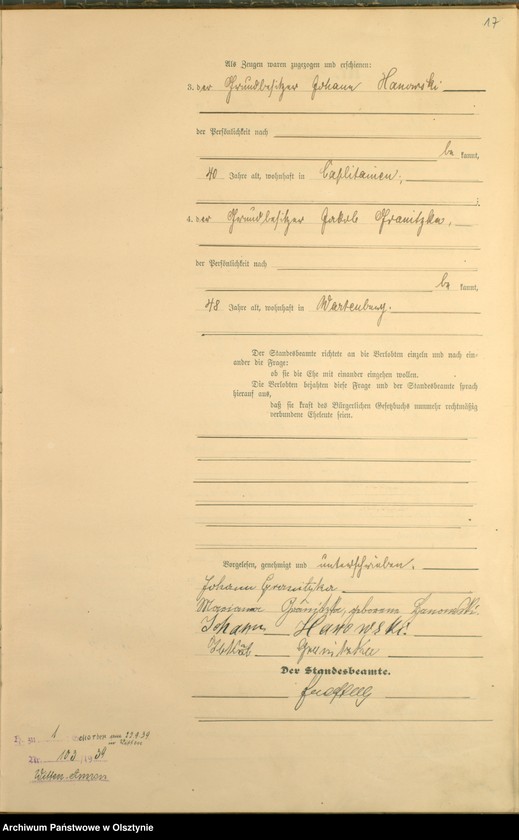 17
Als Zeugen waren zugezogen und erschienen:
3. der Grundbesitzer Johann Hanowski
der Persönlichkeit nach
be kannt,
40 Jahre alt, wohnhaft in
4. der Grundbesitzer Jakob Granitzka,
der Persönlichkeit nach
be kannt,
48 Jahre alt, wohnhaft in Wartenburg.
Der Standesbeamte richtete an die Verlobten einzeln und nach ein-
ander die Frage:
ob sie die Ehe mit einander eingehen wollen.
Die Verlobten bejahten diese Frage und der Standesbeamte sprach
hierauf aus,
daß sie kraft des Bürgerlichen Gesetzbuchs nunmehr rechtmäßig
verbundene Eheleute seien.
Vorgelesen, genehmigt und unterschrieben.
Johann Granitzka
Granitzka, geborene
Johann Hanowski.
Granitzka
Der Standesbeamte.
1 gestorben am 22.9.39
Nr. 103 1939
Witten-Annen
Archiwum Państwowe w Olsztynie